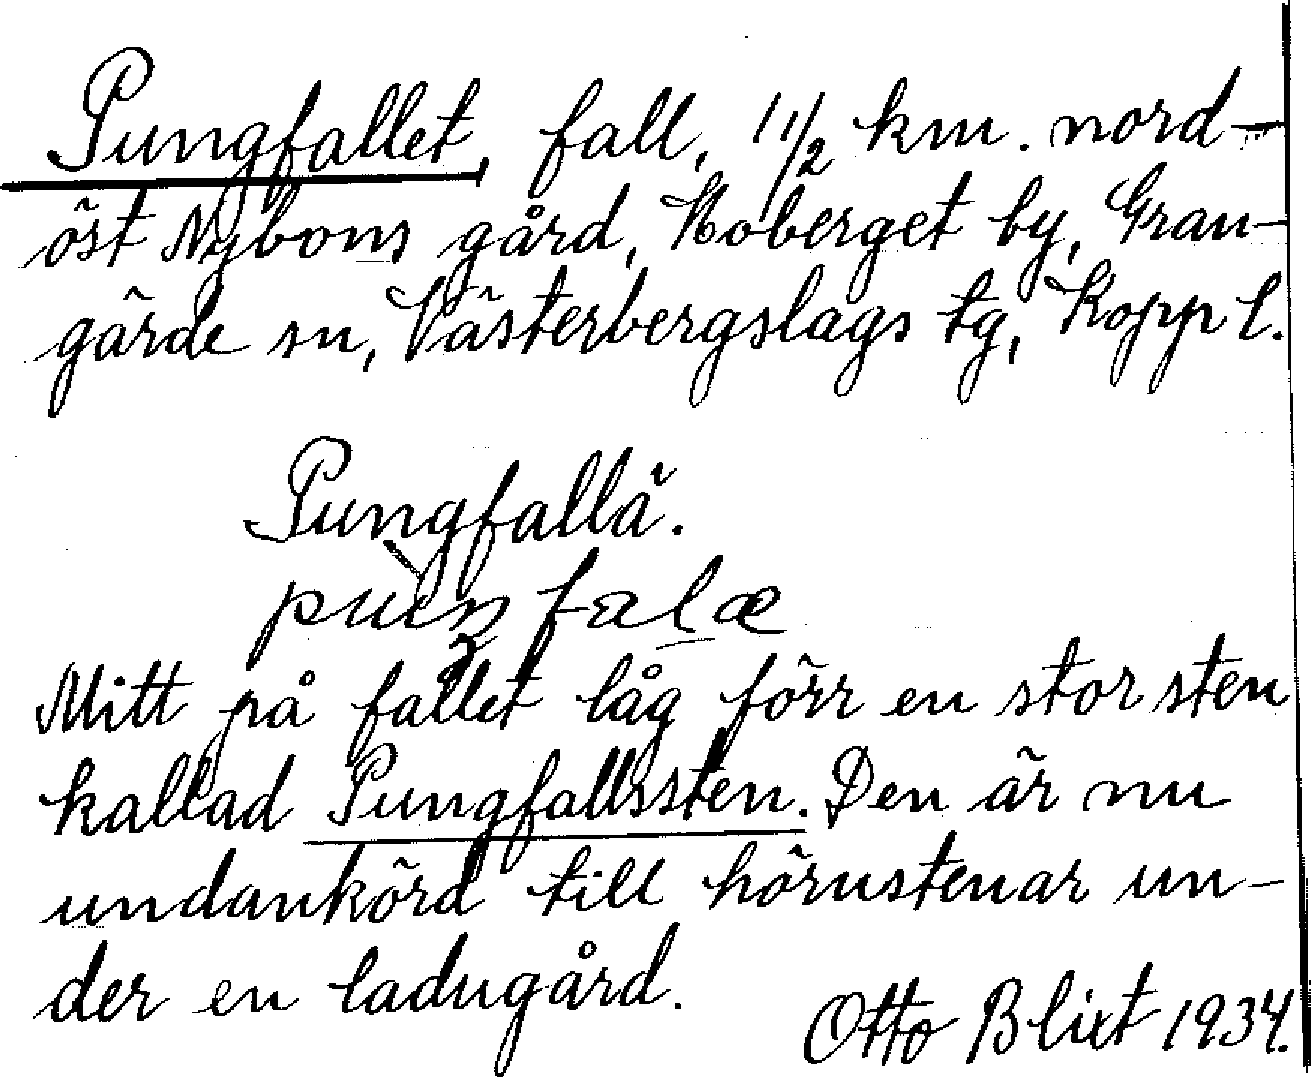 Pungfallet, fall, 1 1/2 km. nord-
öst Nybons gård, Noberget by, Gran-
gärde sn, Västerbergslags tg, Kopp l.
Pungfallä.
Mitt på fallet låg förr en stor sten
kallad Pungfallssten. Den är nu
undankörd till hörnstenar un-
der en ladugård.
Otto Blixt 1934.